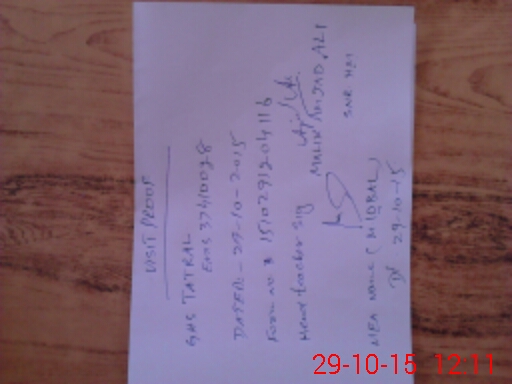 VISIT PROOF
GHS TATRAL
EMIS 37410028
DATED:- 29-10-2015
Form no # 1510291204116
Head teacher sig
MALIK AMJAD ALI
SNR HM
MEA name (M IQBAL)
Dt 29-10-15
29-10-15 12:11